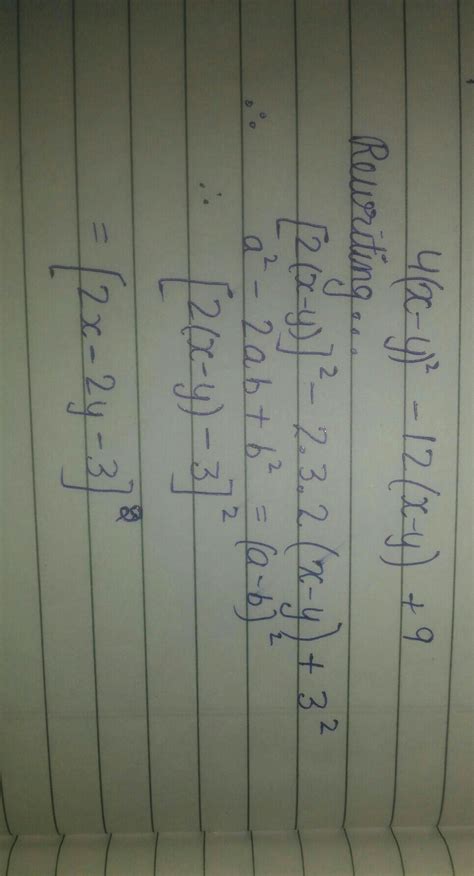 4(x-y)² - 12(x-y) + 9
Rewriting...
[2(x-y)]² - 2.3.2(x-y) + 3²
∴ a² - 2ab + b² = (a-b)²
∴ [2(x-y) - 3]²
= [2x - 2y - 3]²